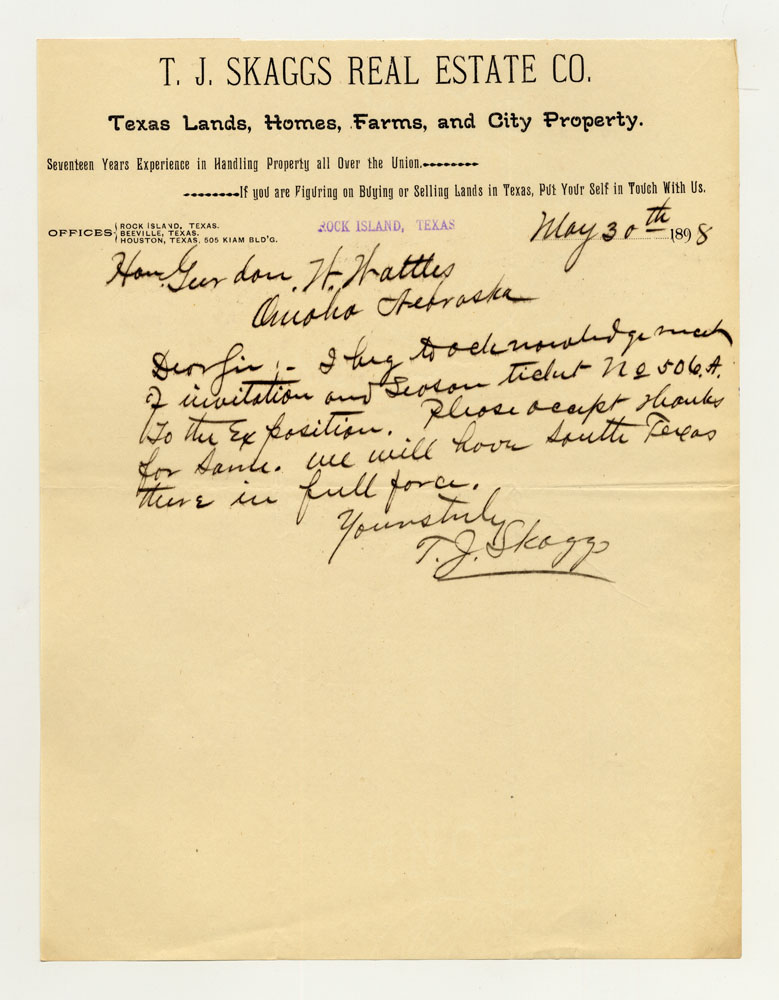 T. J. SKAGGS REAL ESTATE CO.
Texas Lands, Homes, Farms, and City Property.
Seventeen Years Experience in Handling Property all Over the Union.
If you are Figuring on Buying or Selling Lands in Texas, Put Your Self in Touch With Us.
OFFICES
ROCK ISLAND, TEXAS.
BEEVILLE, TEXAS.
HOUSTON, TEXAS, 505 KIAM BLD'G.
ROCK ISLAND, TEXAS
May 30th 1898
Hon. Gurdon. W. Wattles
Omaha Nebraska
Dear Sir ;- I beg to acknowledgement
of invitation and Season ticket No 506.A.
to the Exposition. Please accept thanks
for same. we will have South Texas
there in full force.
Yours truly
T. J. Skaggs